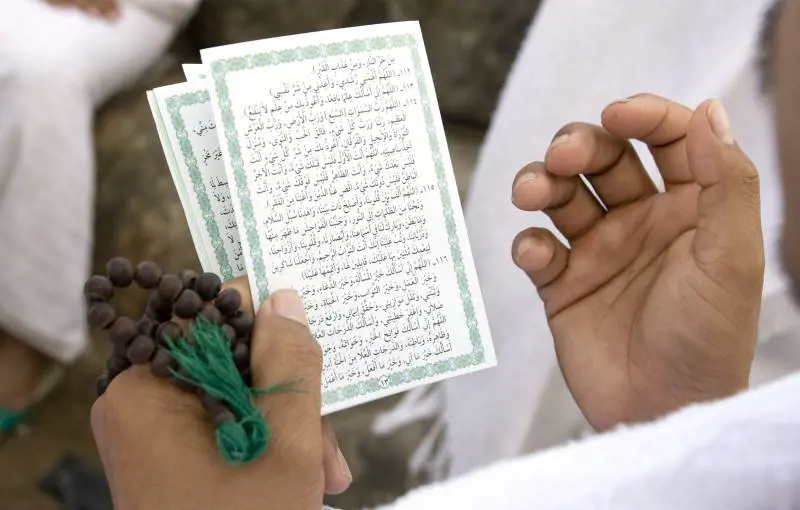 مِنْ حَرِّ النَّارِ، وَمِنْ عَذَابِ القَبْرِ)
١١٢ـ (اللَّهُمَّ أَلْهِمْنِي رُشْدِي، وَأَعِذْنِي مِنْ شَرِّ نَفْسِي)
١١٣ـ (اللَّهُمَّ إِنِّي أَسْأَلُكَ عِلْماً نَافِعاً، وَأَعُوذُ بِكَ مِنْ عِلْمٍ لاَ يَنْفَعُ)
١١٤ـ (اللَّهُمَّ رَبَّ السَّمَوَاتِ [السَّبْعِ] وَرَبَّ الأَرْضِ، وَرَبَّ العَرْشِ
العَظِيمِ، رَبَّنَا وَرَبَّ كُلِّ شَيْءٍ، فَالِقَ الحَبِّ وَالنَّوَى، وَمُنْزِلَ
التَّوْرَاةِ وَالإِنْجِيلِ وَالفُرْقَانِ، أَعُوذُ بِكَ مِنْ شَرِّ كُلِّ شَيْءٍ أَنْتَ
آخِذٌ بِنَاصِيَتِهِ، اللَّهُمَّ أَنْتَ الأَوَّلُ فَلَيْسَ قَبْلَكَ شَيْءٌ، وَأَنْتَ الآخِرُ
فَلَيْسَ بَعْدَكَ شَيْءٌ، وَأَنْتَ الظَّاهِرُ فَلَيْسَ فَوْقَكَ شَيْءٌ، وَأَنْتَ
البَاطِنُ فَلَيْسَ دُونَكَ شَيْءٌ، اقْضِ عَنَّا الدَّيْنَ وَأَغْنِنَا مِنَ الفَقْرِ)
١١٥ـ (اللَّهُمَّ أَلِّفْ بَيْنَ قُلُوبِنَا، وَأَصْلِحْ ذَاتَ بَيْنِنَا، وَاهْدِنَا سُبُلَ السَّلاَمِ،
وَنَجِّنَا مِنَ الظُّلُمَاتِ إِلَى النُّورِ، وَجَنِّبْنَا الفَوَاحِشَ مَا ظَهَرَ مِنْهَا
وَمَا بَطَنَ، وَبَارِكْ لَنَا فِي أَسْمَاعِنَا، وَأَبْصَارِنَا، وَقُلُوبِنَا، وَأَزْوَاجِنَا،
وَذُرِّيَّاتِنَا، وَتُبْ عَلَيْنَا إِنَّكَ أَنْتَ التَّوَّابُ الرَّحِيمُ، وَاجْعَلْنَا شَاكِرِينَ
لِنِعَمِكَ مُثْنِينَ بِهَا عَلَيْكَ، قَابِلِينَ لَهَا، وَأَتِمَّهَا عَلَيْنَا)
١١٦ـ (اللَّهُمَّ إِنِّي أَسْأَلُكَ خَيْرَ المَسْأَلَةِ، وَخَيْرَ الدُّعَاءِ،
وَخَيْرَ العَمَلِ، وَخَيْرَ الثَّوَابِ، وَخَيْرَ الحَيَاةِ،
وَثَبِّتْنِي، وَثَقِّلْ مَوَازِينِي، وَحَقِّقْ إِيمَانِي، وَارْفَعْ
صَلاَتِي، وَاغْفِرْ خَطِيئَتِي، وَأَسْأَلُكَ الدَّرَجَاتِ
اللَّهُمَّ إِنِّي أَسْأَلُكَ فَوَاتِحَ الخَيْرِ، وَخَوَاتِمَهُ،
وَظَاهِرَهُ، وَبَاطِنَهُ، وَالدَّرَجَاتِ العُلاَ مِنَ الجَنَّةِ
أَسْأَلُكَ خَيْرَ مَا آتِي، وَخَيْرَ مَا أَفْعَلُ، وَخَيْرَ مَا أَعْمَلُ،